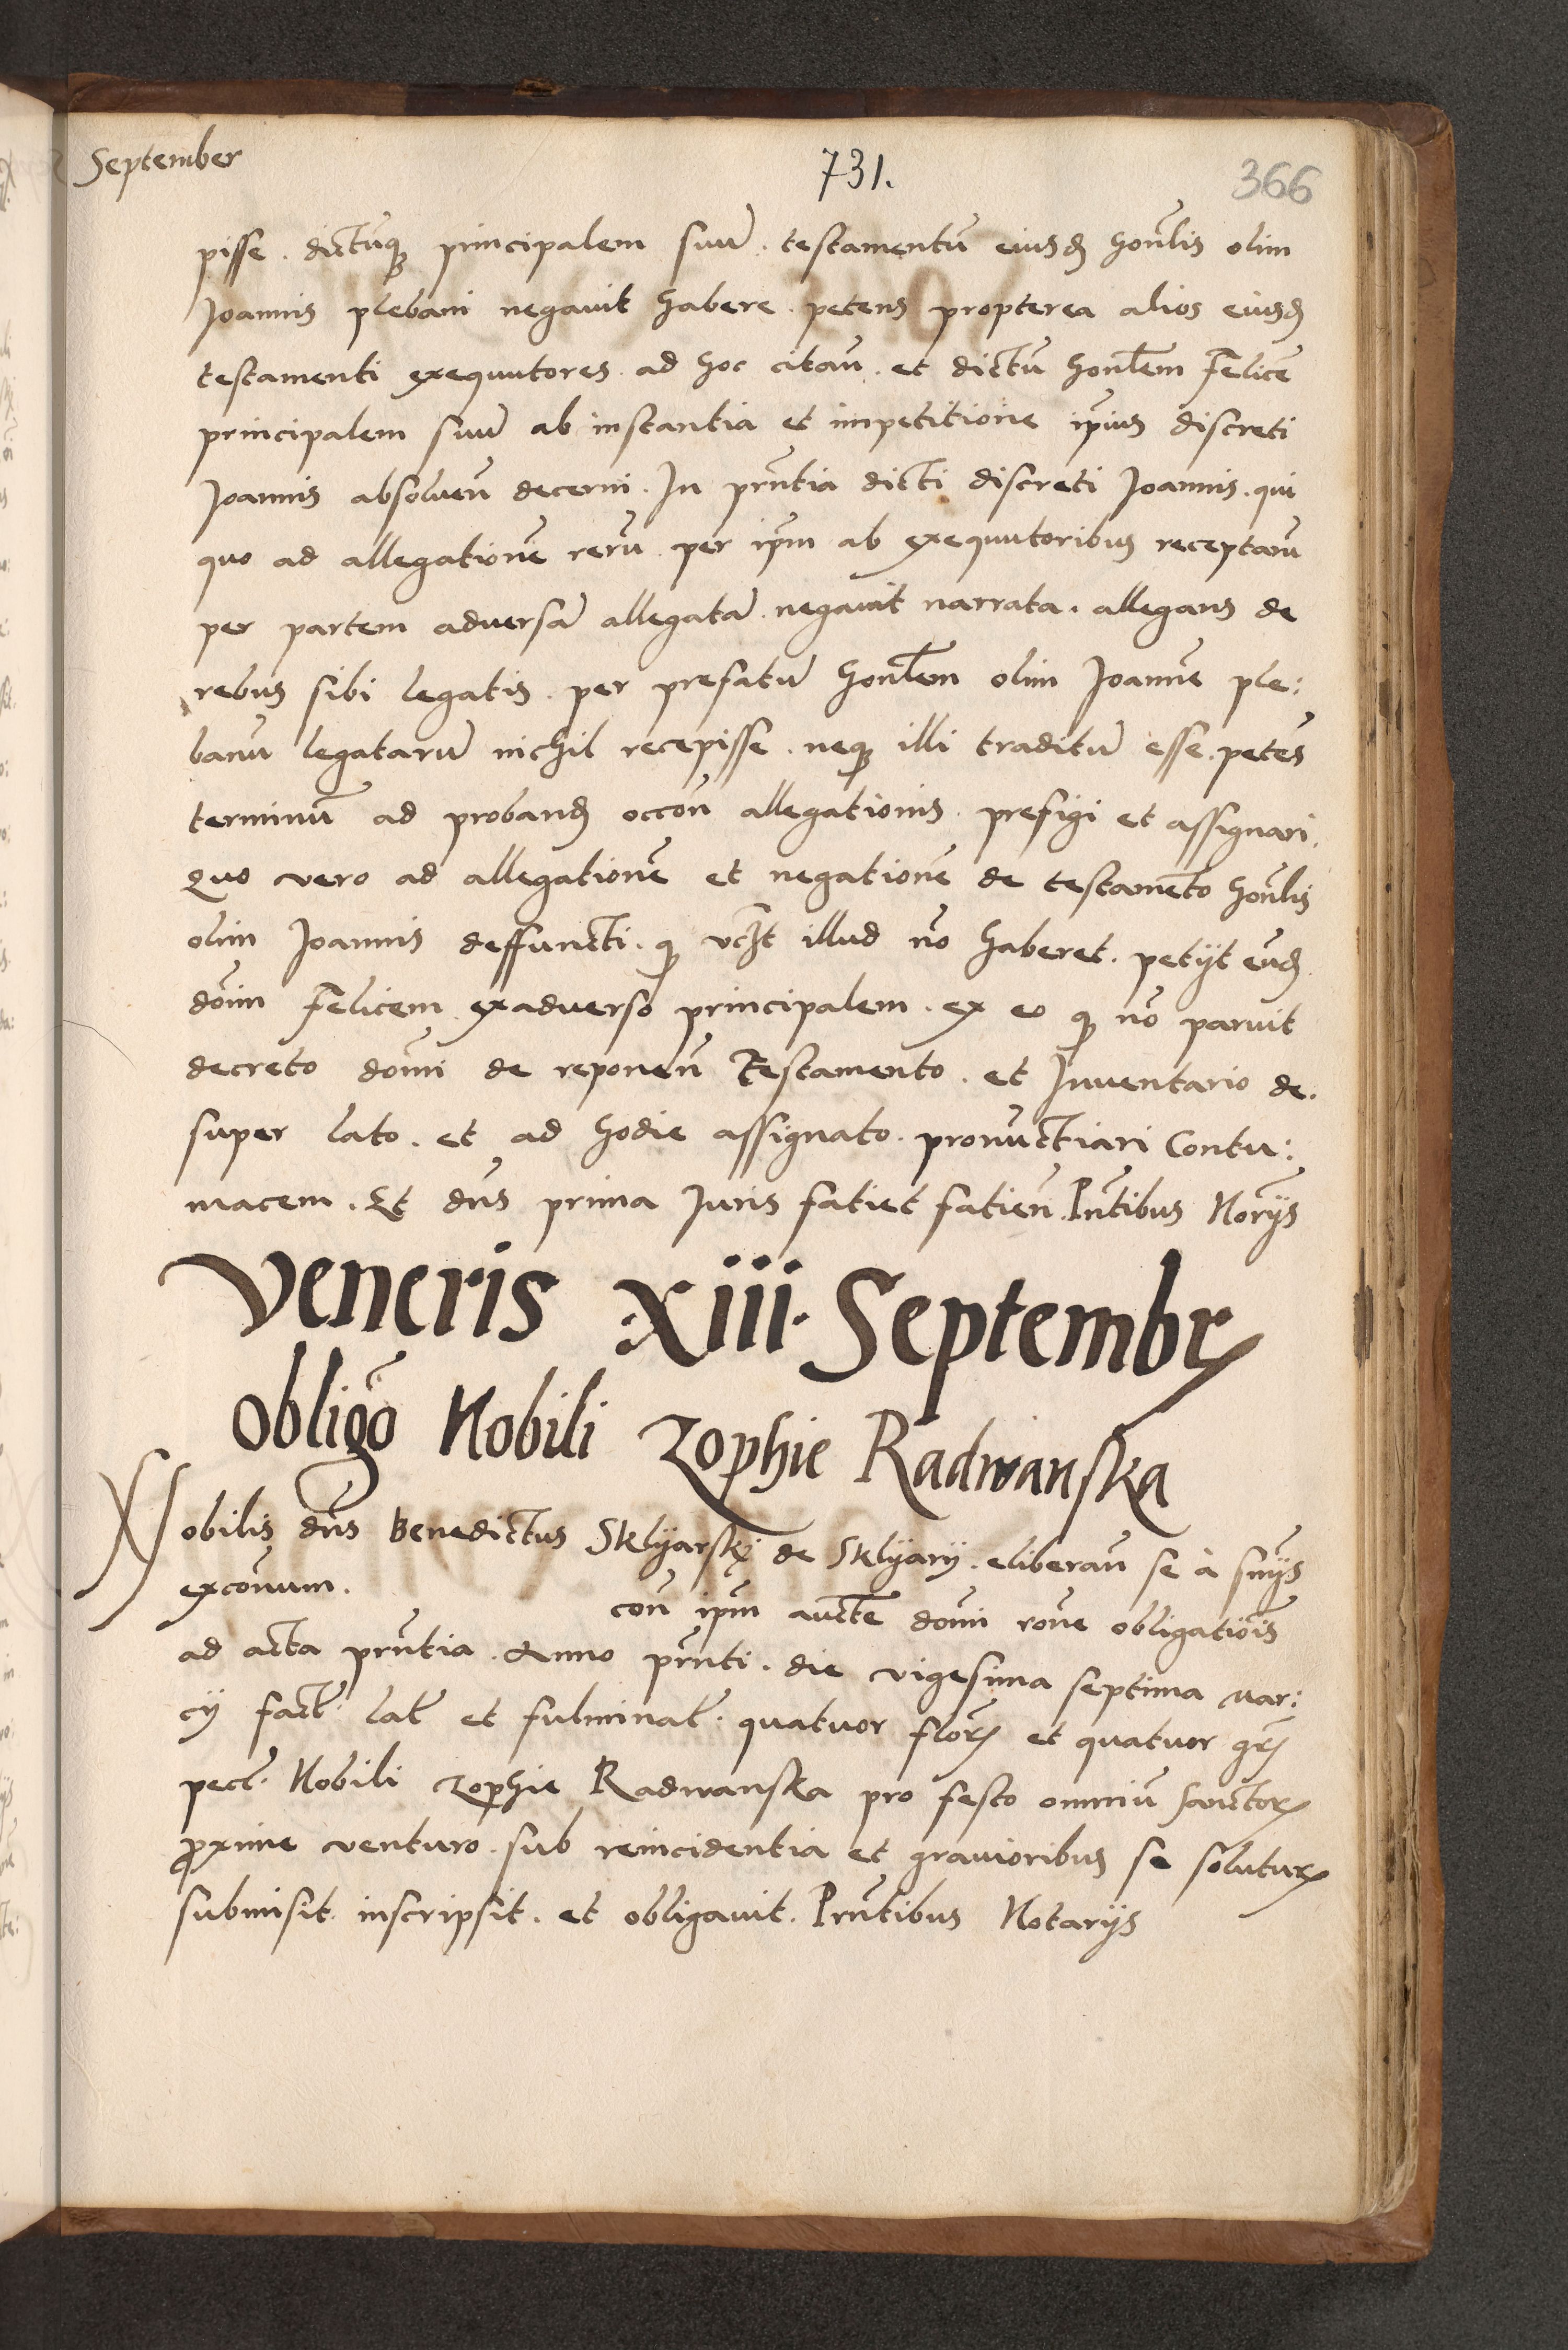 September
731.
366
pisse . dictūq principalem suū . testamentū eiusd honlis olim
Joannis plebani negauit habere . petens propterea alios eiusd
testamenti exequutores . ad hoc citan . et dictū honlem Felicē
principalem suū ab instantia et impetitione ipius discreti
Joannis absoluen decerni . In pntia dicti discreti Joannis . qui
quo ad allegationē rerū . per ipm ab exequutoribus receptaru
per partem aduersā allegatā . negauit narrata . allegans de
rebus sibi legatis . per prefatū honlem olim Joannē ple:
banū legatarū nichil recepisse . neq illi traditū esse . petēs
terminū ad proband occon allegationis . prefigi et assignari .
Quo vero ad allegationē et negationē de testamēto honlis
olim Joannis deffuncti . q illud nō haberet . petijt eūd
dōim Felicem exaduerso principalem . ex eo q nō paruit
decreto dōmi de reponen Testamento . et Inuentario de .
super lato . et ad hodie assignato . pronuctiari Contu:
macem . Et dns prima Juris fatiet fatien . Pntibus Norijs
Veneris .xiii. Septembr
Obligō Nobili Zophie Radwanska
Nobilis dns Benedictus Sklyarsky de Sklyary . eliberan se à suijs
exconum . con ipm aucte dōmi rōne obligatiōis
ad acta pntia . Anno pnti . die vigesima septima Mar:
cij fact lat et fulminat . quatuor flor et quatuor gr
pecl . Nobili Zophie Radwanska pro festo omniū Sanctor
proxime venturo . sub reincidentia et grauioribus se solutur
submisit inscripsit . et obligauit . Pntibus Notarijs